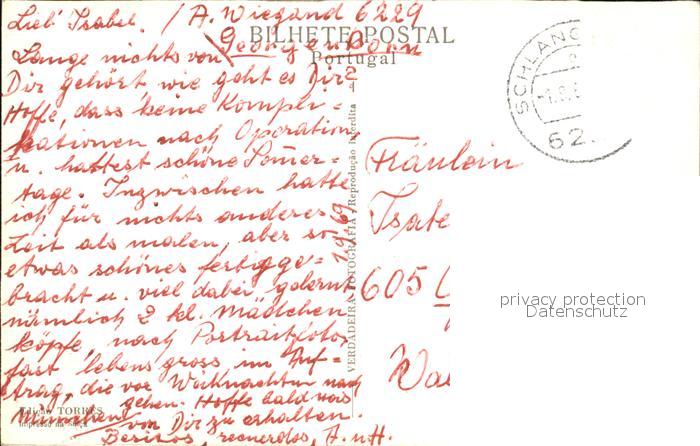 Lieb' Isabel. / A. Wiegand 6229
Georgenborn
BILHETE POSTAL
Portugal
Lange nichts von
Dir gehört wie geht es Dir?
Hoffe, dass keine Kompli=
kationen nach Operation
u. hattest schöne Somer=
tage. Inzwischen hatte
ich für nichts anderes
Zeit als malen, aber so
etwas schönes fertigge=
bracht u. viel dabei gelernt
nämlich 2 kl. Mädchen
köpfe, nach Portraitfotos
fast lebensgross, im Auf=
trag, die vor Weihnachten nach
München gehen. Hoffe bald was
von Dir zu erhalten.
Besitos, recuerdos, A. u H.
Edição TORRES
Impresso na Suíça
VERDADEIRA FOTOGRAFIA - Reprodução Interdita
SCHLANG
62.
Fräulein
Isabe
605
privacy protection
Datenschutz